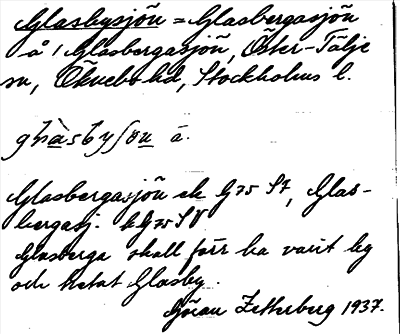 Glasbysjön = Glasbergasjön
å 1 Glasbergasjön, Öster-Tälje
sn, Öknebo hd, Stockholms l.
glɑ̀sbyʃøn ā.
Glasbergasjön ek G75 S7, Glas-
bergasj. hg75 SV
Glasberga skall förr ha varit by
och hetat Glasby.
Göran Zetterberg 1937.